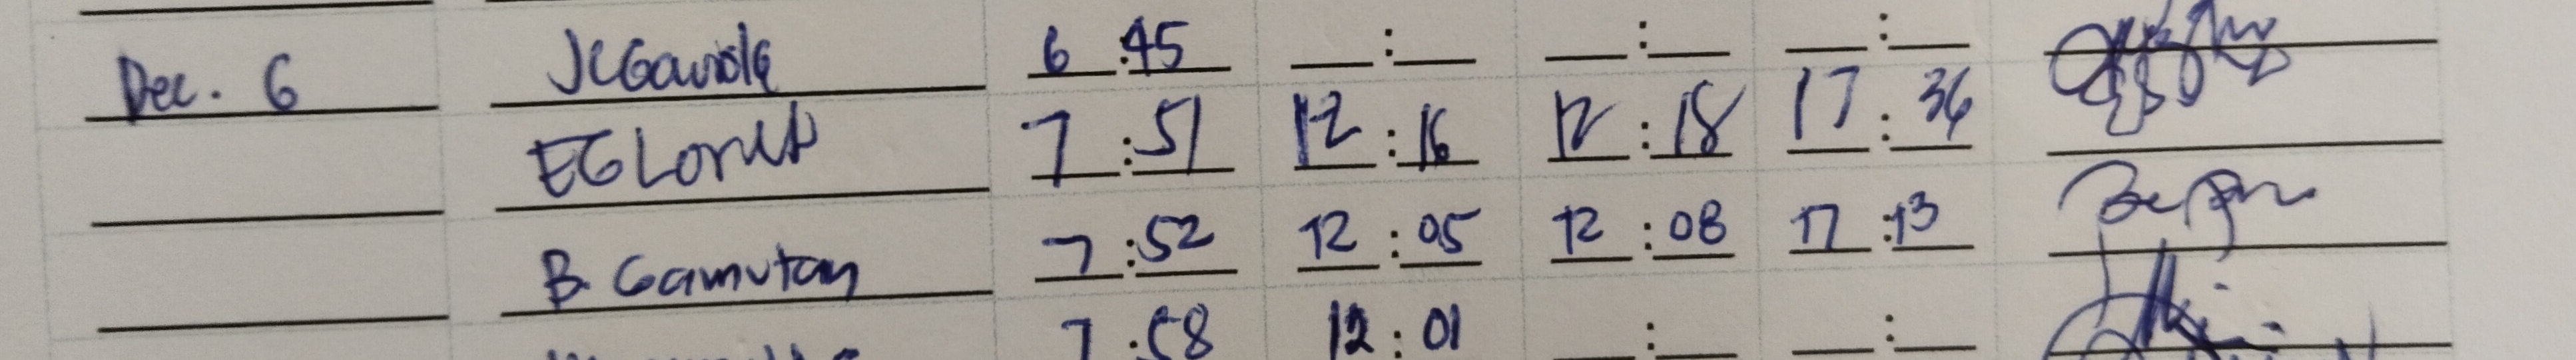 Dec. 6 JCGavole 6:45 __:__ __:__ __:__
EGLorito 7:51 12:16 12:18 17:36
B. Gamutan 7:52 12:05 12:08 17:13
7:58 12:01 __:__ __:__